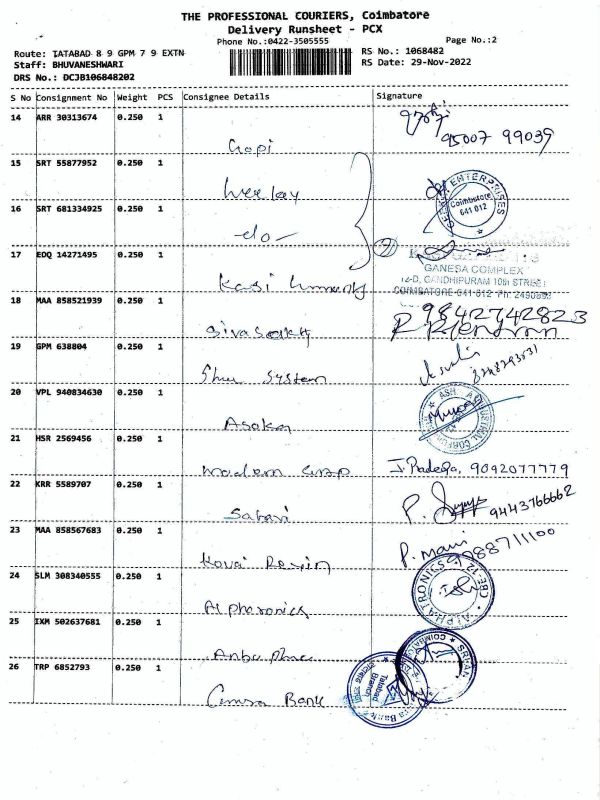 THE PROFESSIONAL COURIERS, Coimbatore
Delivery Runsheet - PCX
Phone No.:0422-3505555
Page No.:2
Route: TATABAD 8 9 GPM 7 9 EXTN
RS No.: 1068482
Staff: BHUVANESHWARI
RS Date: 29-Nov-2022
DRS No.: DCJB106848202
S No Consignment No Weight PCS Consignee Details Signature
14 ARR 30313674 0.250 1
Gopi 95007 99039
15 SRT 55877952 0.250 1
ENTERPRISES
Coimbatore
641 012
16 SRT 681334925 0.250 1
-do-
17 EDQ 14271495 0.250 1
GANESA COMPLEX
12-D, GANDHIPURAM 10th STREET
COIMBATORE-641 012 Ph: 2490893
Kasi
18 MAA 858521939 0.250 1
9842742823
Sivasakthi
19 GPM 638804 0.250 1
Shree System
20 VPL 940834630 0.250 1
Asoka
21 HSR 2569456 0.250 1
Modern J. Pradeepa, 9092077779
22 KRR 5589707 0.250 1
Sabari P. 9443766662
23 MAA 858567683 0.250 1
Kovai P. mani 9788711100
24 SLM 308340555 0.250 1
Alphatronics
ALPHATRONICS CBE-12
25 IXM 502637681 0.250 1
Anbu
26 TRP 6852793 0.250 1
Canara Bank
Tatabad
Branch